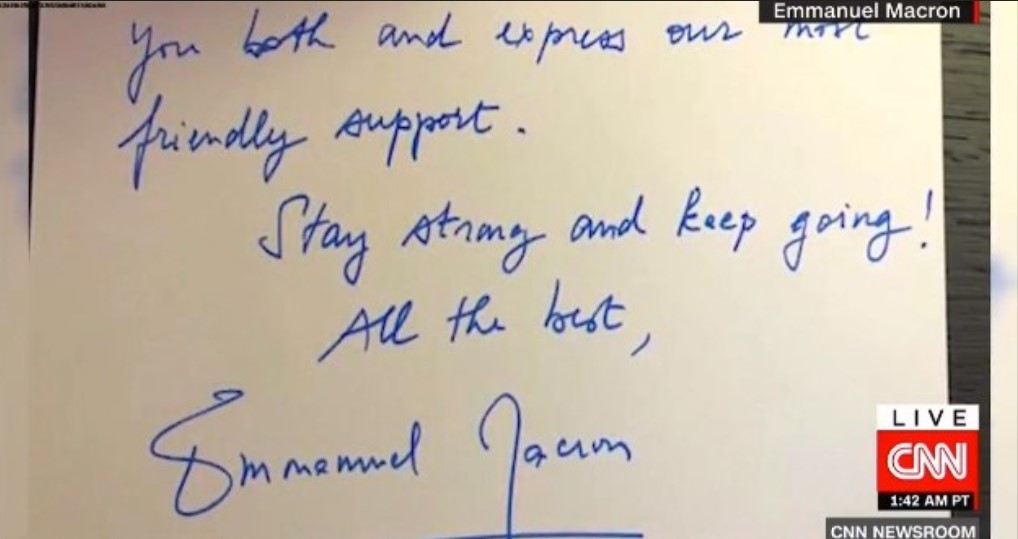 Emmanuel Macron
you both and express our most
friendly support.
Stay strong and keep going!
All the best,
Emmanuel Macron
LIVE
CNN
1:42 AM PT
CNN NEWSROOM